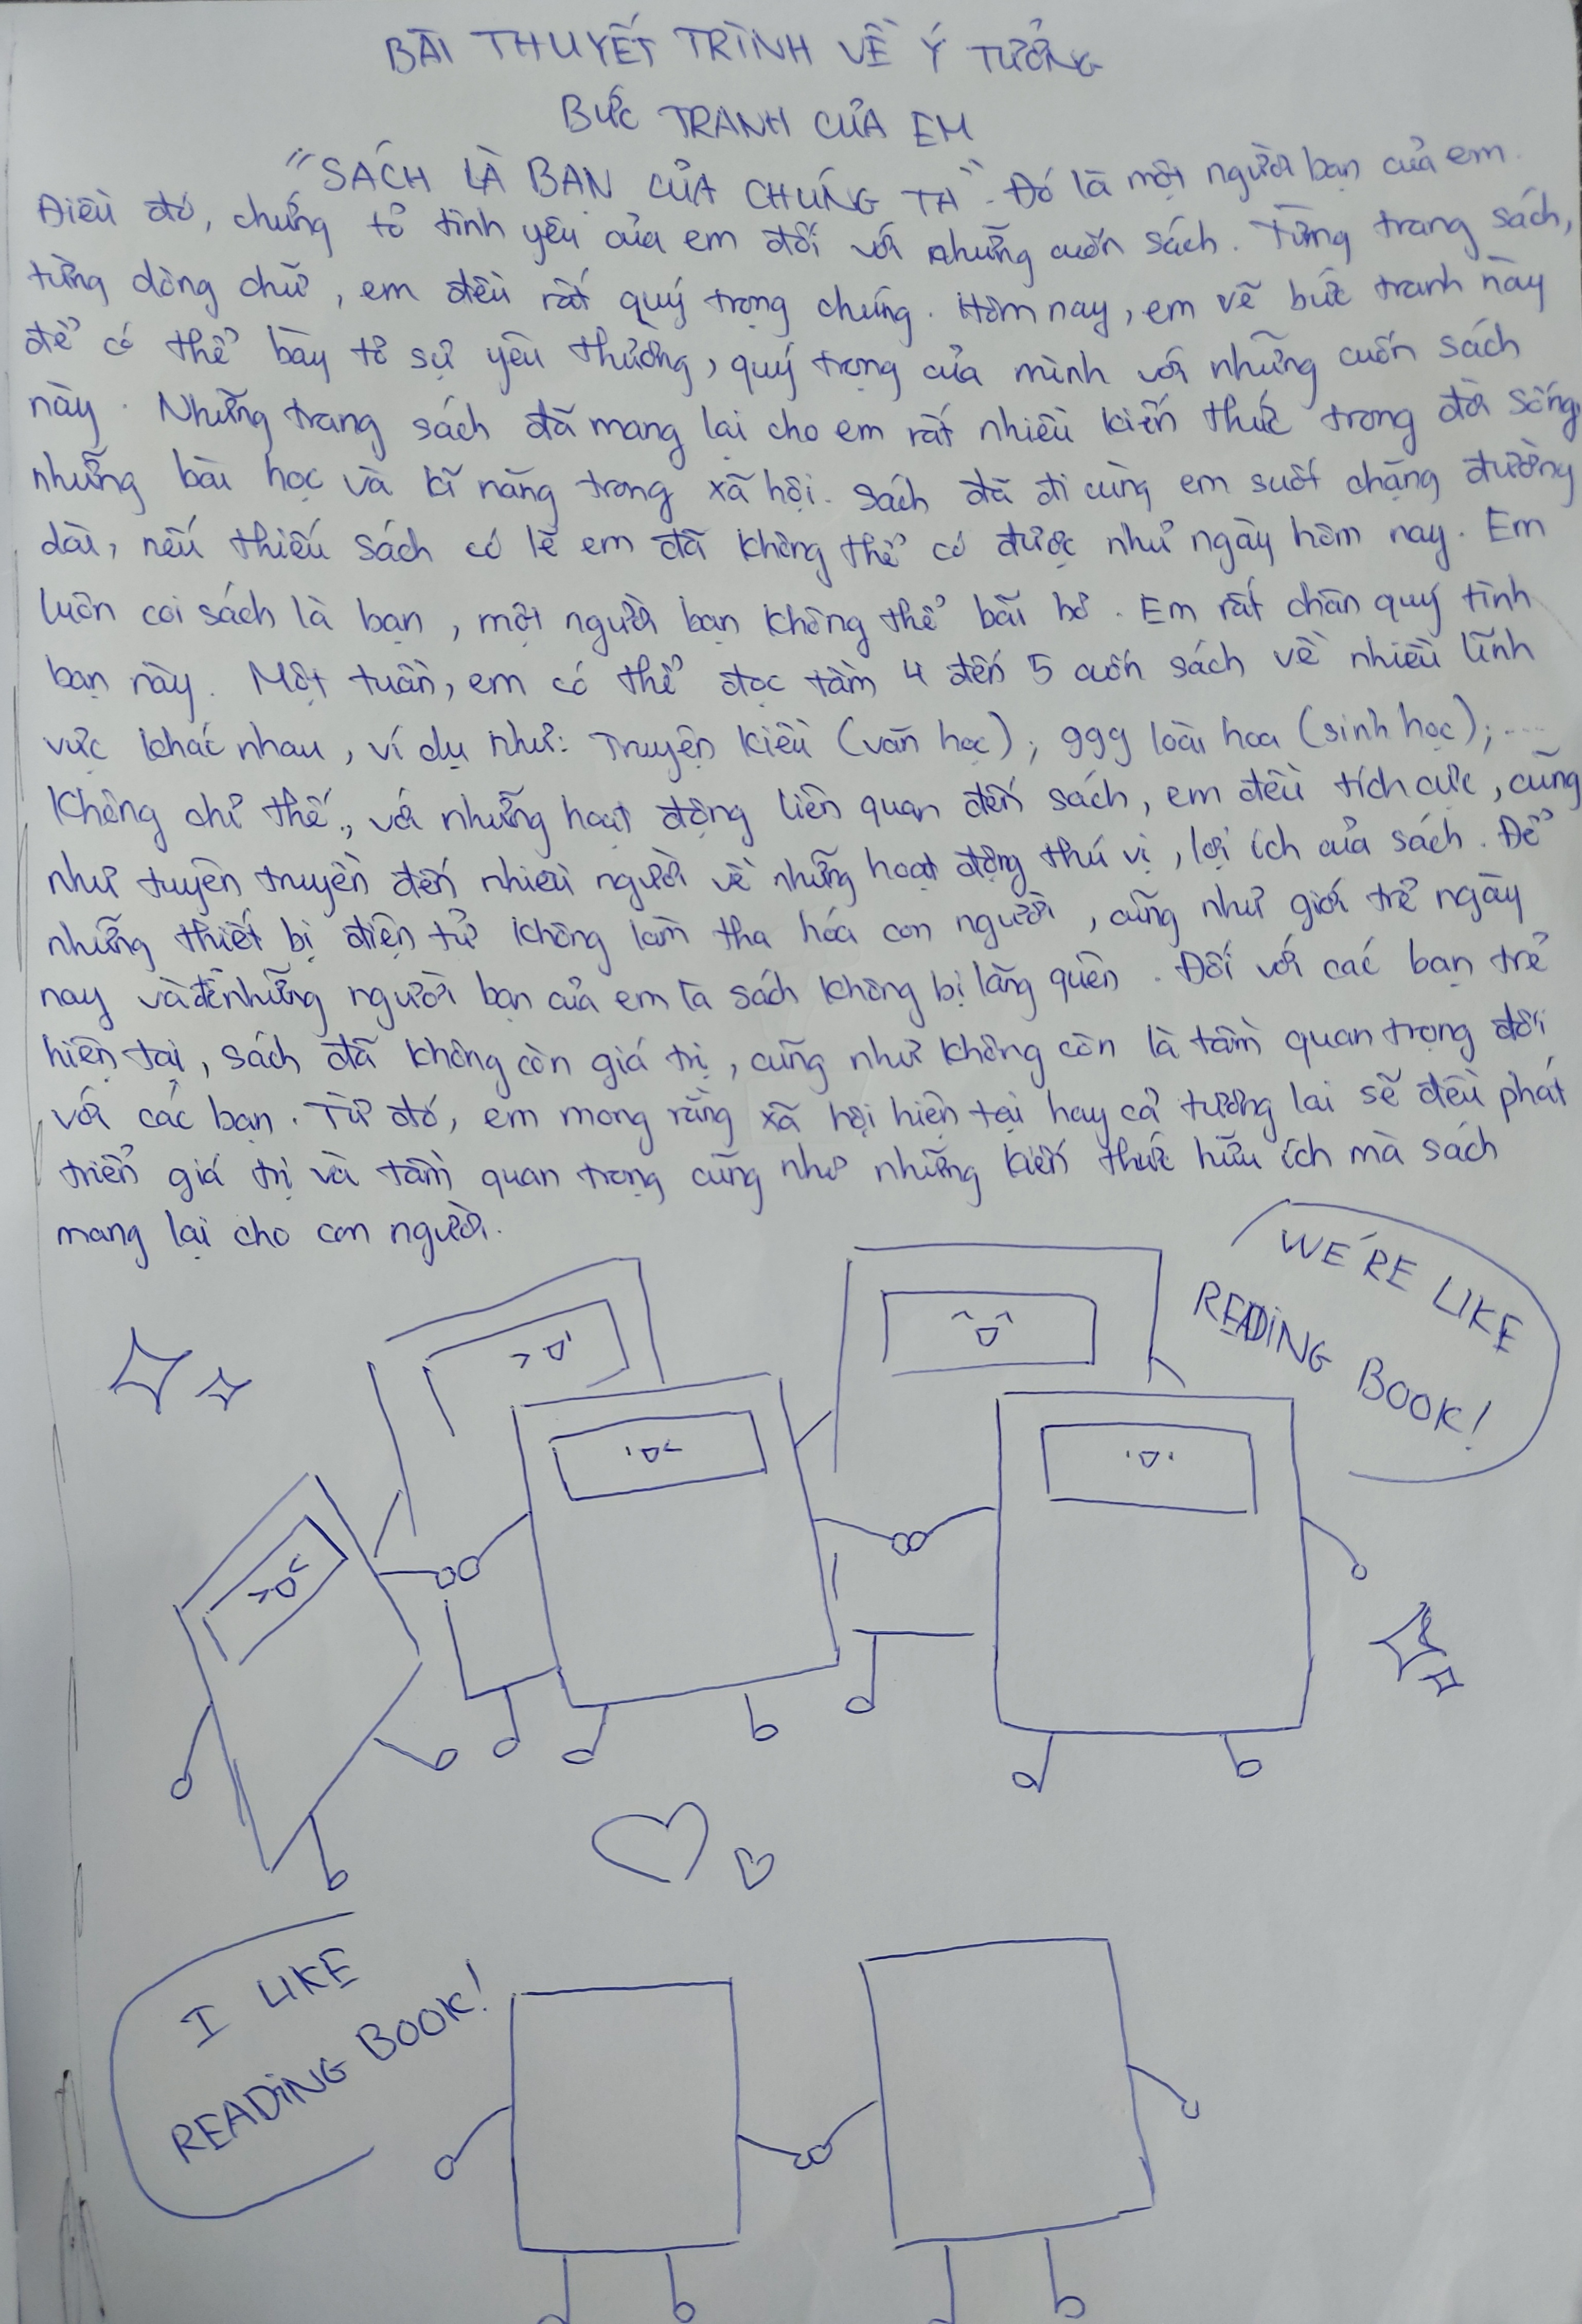 BÀI THUYẾT TRÌNH VỀ Ý TƯỞNG
BỨC TRANH CỦA EM
"SÁCH LÀ BẠN CỦA CHÚNG TA". Đó là một người bạn của em.
Điều đó, chứng tỏ tình yêu của em đối với những cuốn sách. Từng trang sách,
từng dòng chữ, em đều rất quý trọng chúng. Hôm nay, em vẽ bức tranh này
để có thể bày tỏ sự yêu thương, quý trọng của mình với những cuốn sách
này. Những trang sách đã mang lại cho em rất nhiều kiến thức trong đời sống,
những bài học và kĩ năng trong xã hội. Sách đã đi cùng em suốt chặng đường
dài, nếu thiếu sách có lẽ em đã không thể có được như ngày hôm nay. Em
luôn coi sách là bạn, một người bạn không thể bãi bỏ. Em rất chân quý tình
bạn này. Một tuần, em có thể đọc tầm 4 đến 5 cuốn sách về nhiều lĩnh
vực khác nhau, ví dụ như: Truyện Kiều (văn học); 999 loài hoa (sinh học);...
Không chỉ thế, với những hoạt động liên quan đến sách, em đều tích cực, cũng
như tuyên truyền đến nhiều người về những hoạt động thú vị, lợi ích của sách. Để
những thiết bị điện tử không làm tha hóa con người, cũng như giới trẻ ngày
nay và để những người bạn của em là sách không bị lãng quên. Đối với các bạn trẻ
hiện tại, sách đã không còn giá trị, cũng như không còn là tầm quan trọng đối
với các bạn. Từ đó, em mong rằng xã hội hiện tại hay cả tương lai sẽ đều phát
triển giá trị và tầm quan trọng cũng như những kiến thức hữu ích mà sách
mang lại cho con người.
WE'RE LIKE
READING BOOK!
I LIKE
READING BOOK!